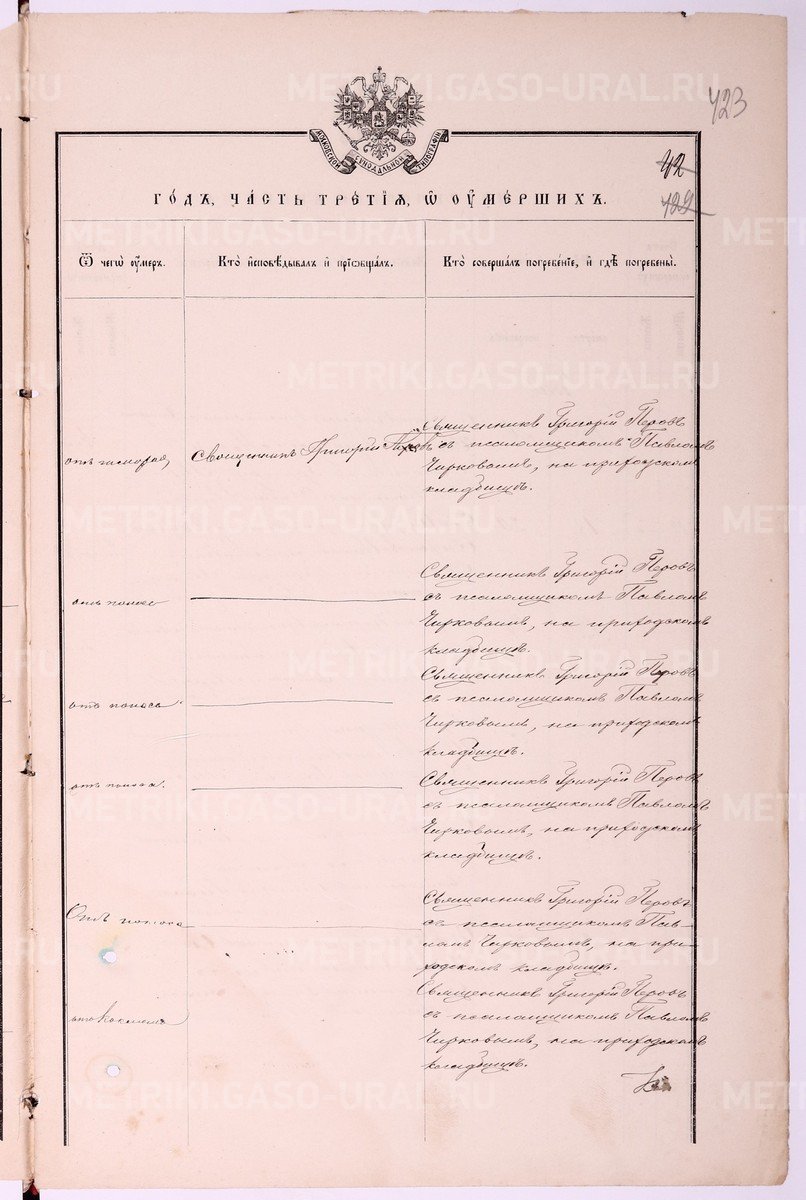 423
МОСКОВСКОЙ СѴНОДАЛЬНОЙ ТИПОГРАФІИ
42
422
ГО́ДЪ, ЧА́СТЬ ТРЕ́ТІѦ, Ѡ҆ ОУ҆МЕ́РШИХЪ.
Ѿ чегѡ̀ оу҆́мер.
Кто̀ и҆сповѣ́дывалъ и҆ прїѡбща́лъ.
Кто̀ соверша́лъ погребе́нїе, и҆ гдѣ̀ погребены̀.
Священникъ Григорій Перовъ
Священник Григорій Перовъ
съ псаломщикомъ Павломъ
Чирковымъ, на приходскомъ
кладбищѣ.
Священникъ Григорій Перовъ
отъ поноса
съ псаломщикомъ Павломъ
Чирковымъ, на приходскомъ
кладбищѣ.
Священникъ Григорій Перовъ
отъ поноса
съ псаломщикомъ Павломъ
Чирковымъ, на приходскомъ
кладбищѣ.
отъ поноса.
Священникъ Григорій Перовъ
съ псаломщикомъ Павломъ
Чирковымъ, на приходскомъ
кладбищѣ.
Отъ поноса
Священникъ Григорій Перовъ
съ псаломщикомъ Пав-
ломъ Чирковымъ, на при-
ходскомъ кладбищѣ.
Священникъ Григорій Перовъ
отъ
съ псаломщикомъ Павломъ
Чирковымъ, на приходскомъ
кладбищѣ.
METRIKI.GASO-URAL.RU